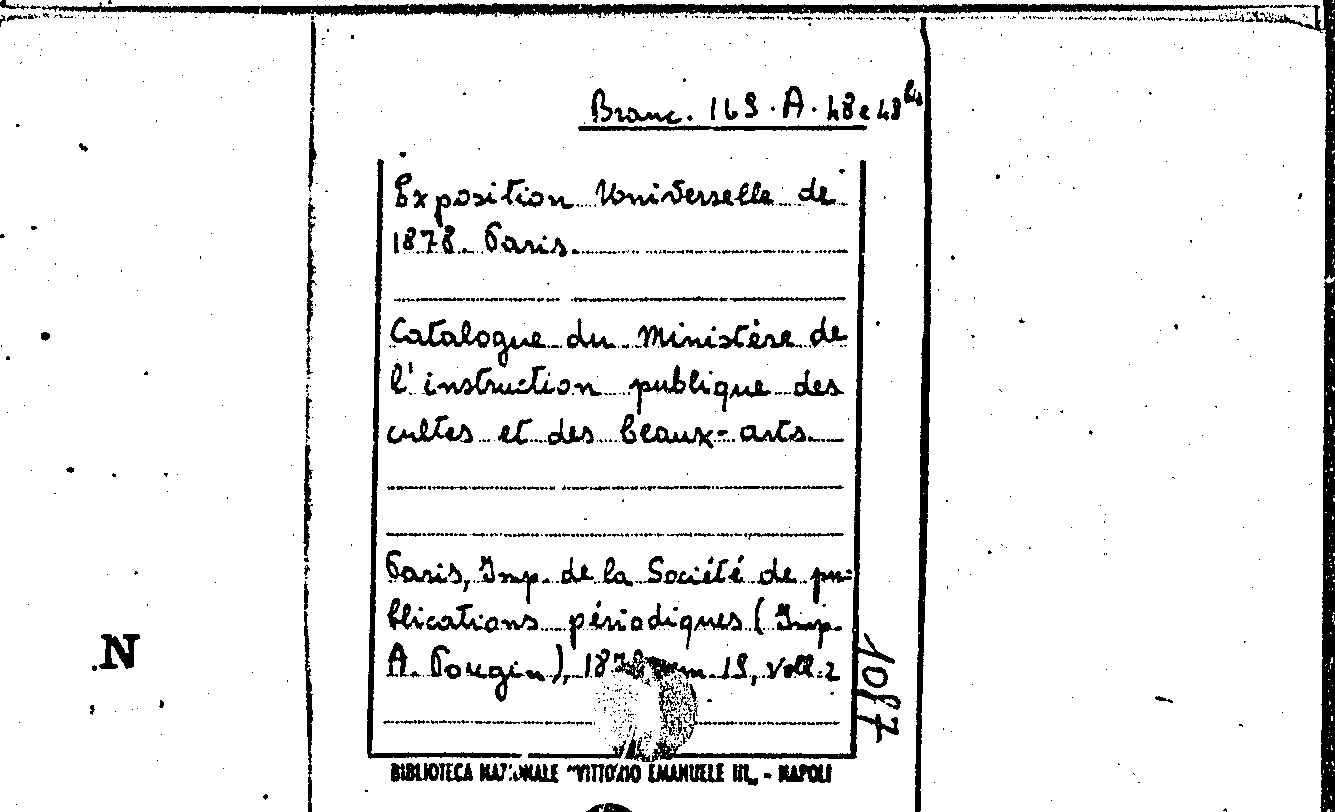 Branc. 169. A. 48 e 48 bis
Exposition Universelle de
1878. Paris.
Catalogue du Ministère de
l'instruction publique des
cultes et des beaux-arts.
Paris, Imp. de la Société de pu=
blications périodiques (Imp.
A. Pougin), 1878 cm. 19, voll. 2
1087
N
BIBLIOTECA NAZIONALE "VITTORIO EMANUELE III„ - NAPOLI